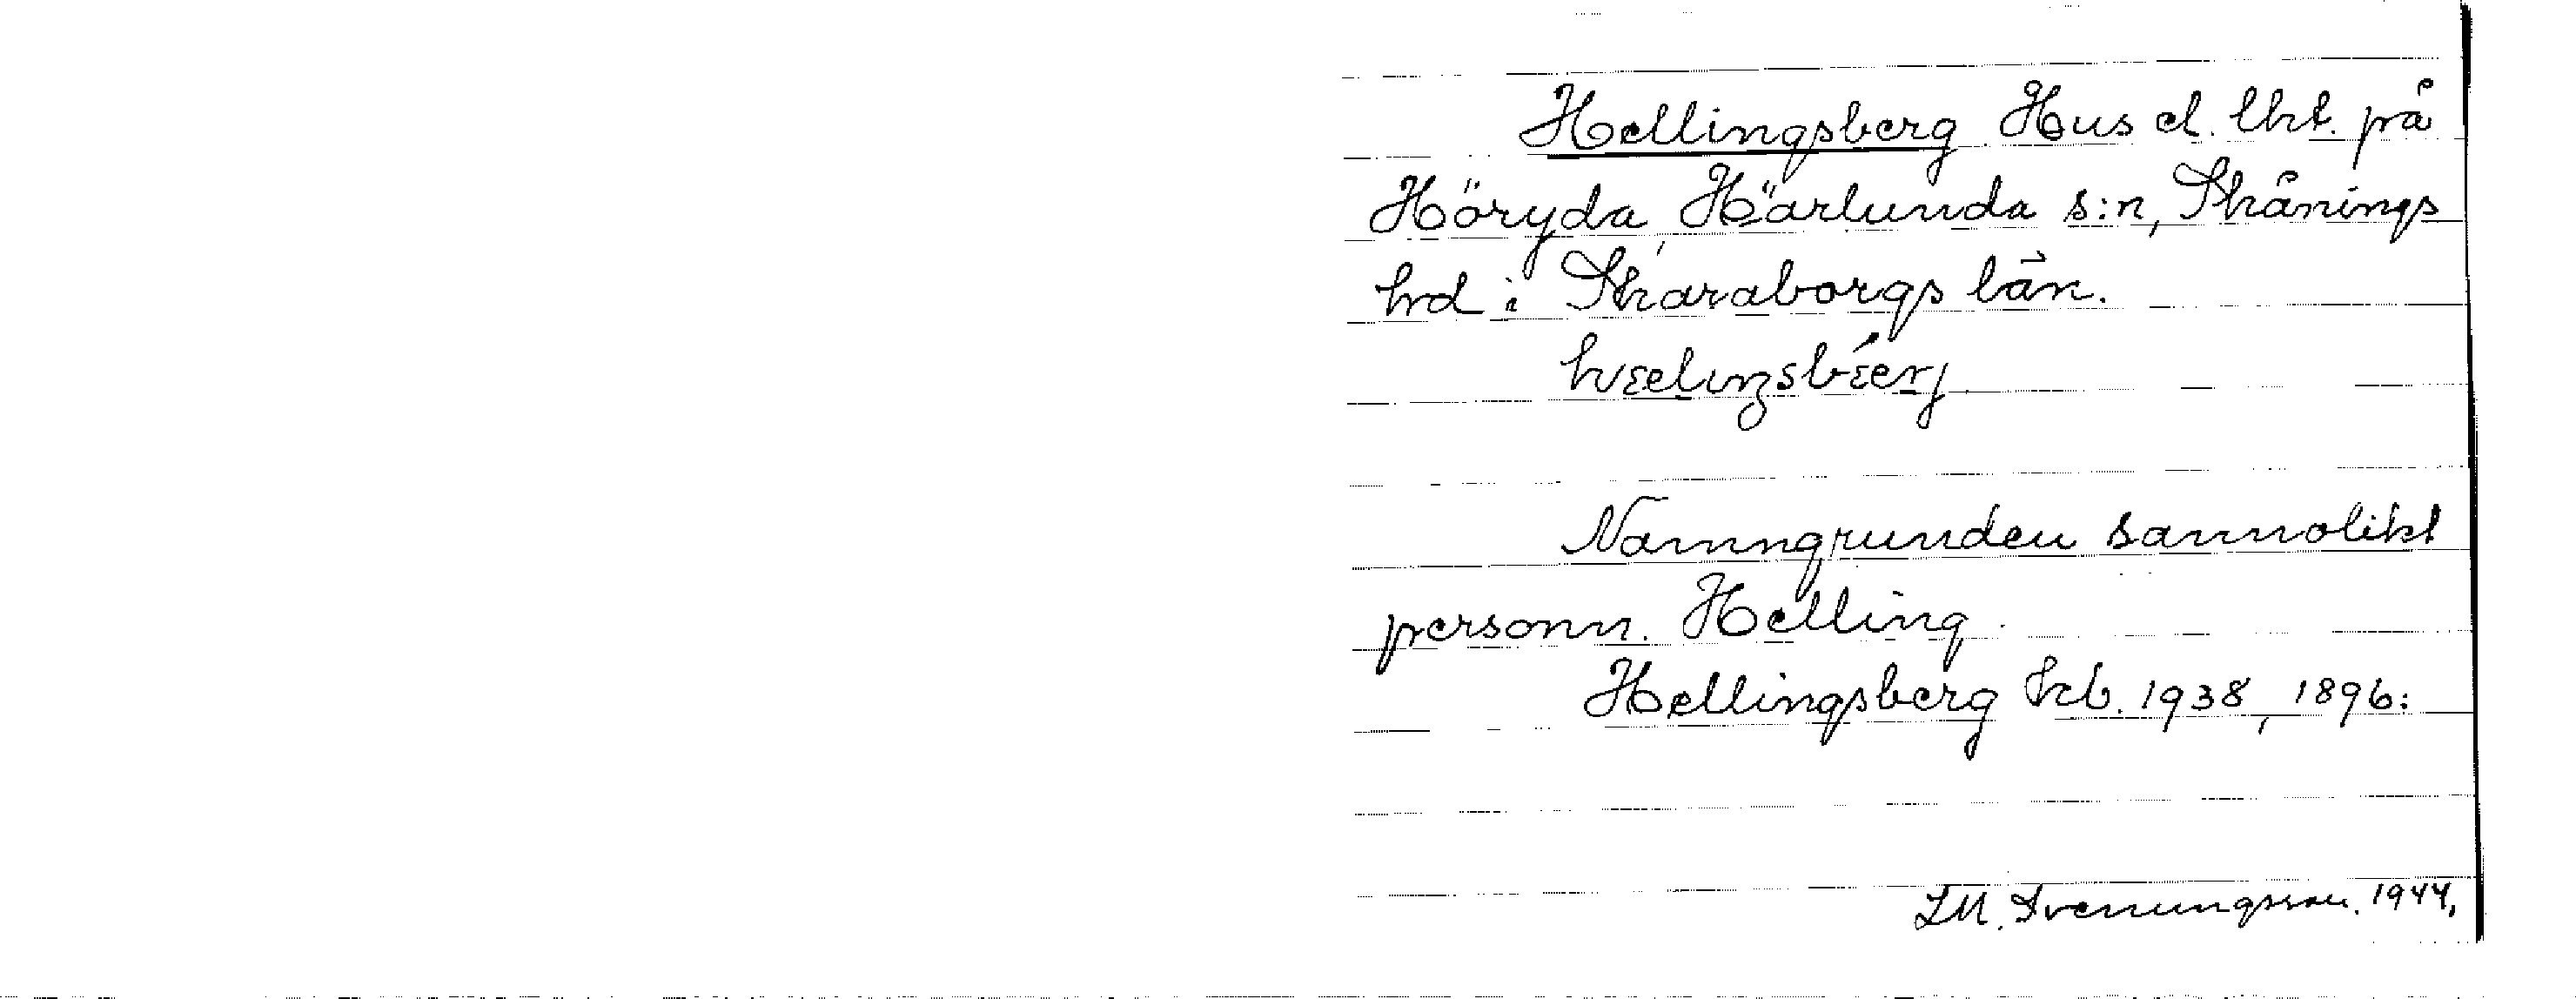 Hellingsberg Hus el. lht. på
Höryda, Härlunda s:n, Skånings
hrd i Skaraborgs län.
Namngrunden sannolikt
personn. Helling.
Hellingsberg Kb. 1938, 1896:
L.M. Svenungsson. 1944.